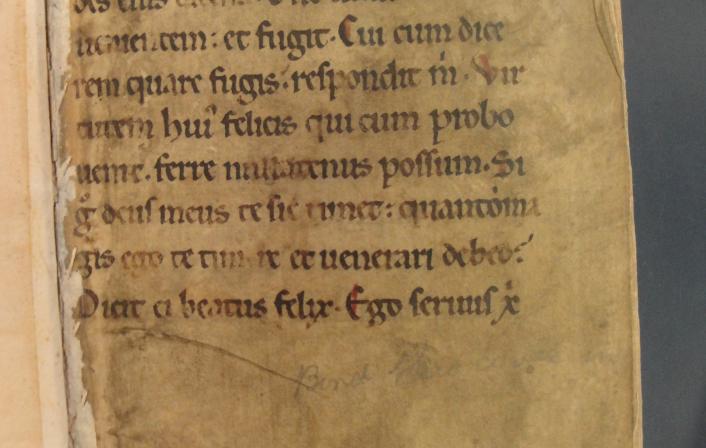 uementem: et fugit. Cui cum dice
rem quare fugis. respondit m̅. Vir
tutem hui᷒ felicis qui cum probo
uenit. ferre nullatenus possum. Si
g̊ deus meus te sic timet: quantoma
gis ego te timere et uenerari debeo?
Dicit ei beatus felix. Ego seruus x̅
Bind